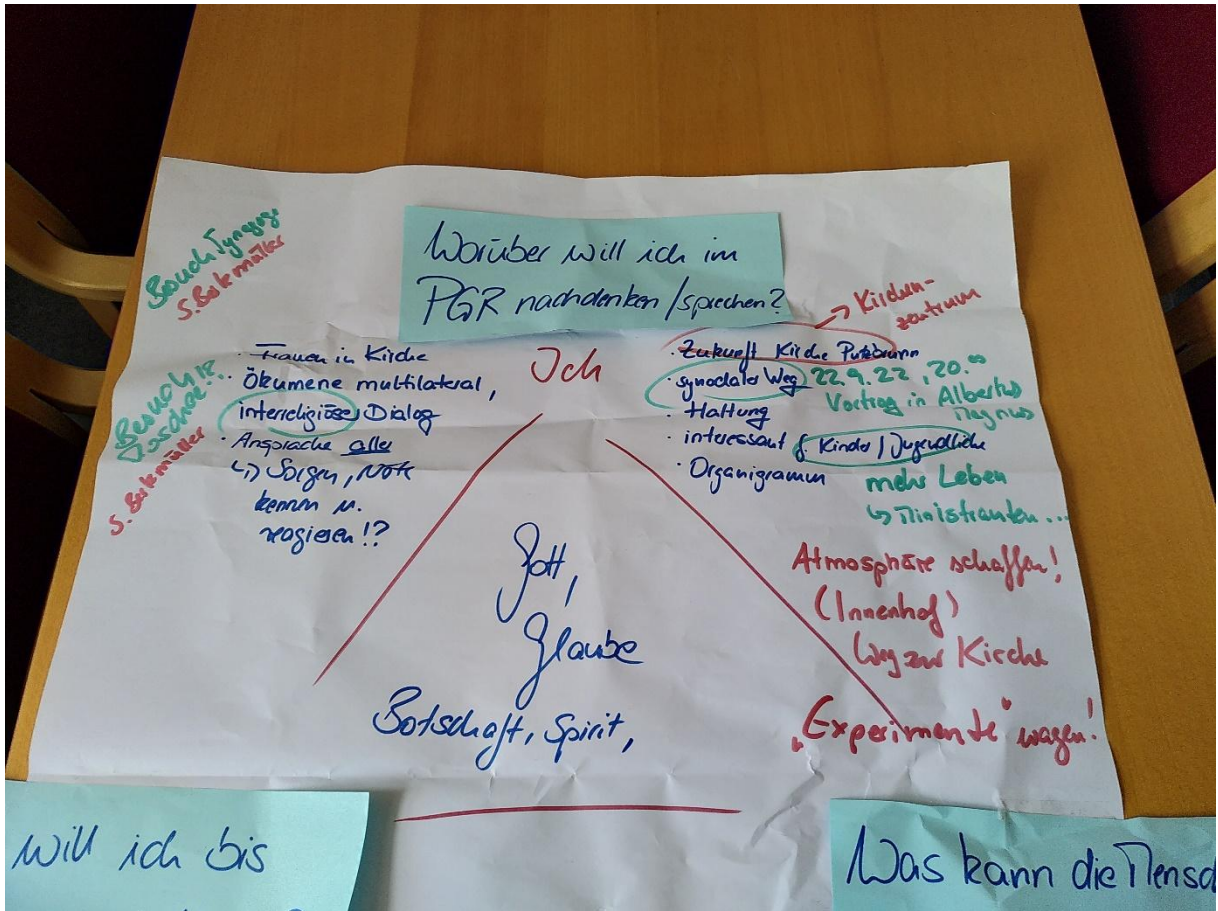 Worüber will ich im
PGR nachdenken/sprechen?
Besuch Synagoge
S. Beikmüller
Besuch
Moschee!?
S. Beikmüller
· Frauen in Kirche
· Ökumene multilateral,
interreligiöser Dialog
· Ansprache aller
↳ Sorgen, Nöte
kennen u.
reagieren!?
Ich
→ Kirchen-
zentrum
· Zukunft Kirche Putzbrunn
· synodaler Weg 22.9.22, 20.00
Vortrag in Albertus
Magnus
· Haltung
· interessant f. Kinder / Jugendliche
· Organigramm
mehr Leben
↳ Ministranten...
Atmosphäre schaffen!
(Innenhof)
Weg zur Kirche
„Experimente" wagen!
Gott,
Glaube
Botschaft, Spirit,
will ich bis
Was kann die Mensch